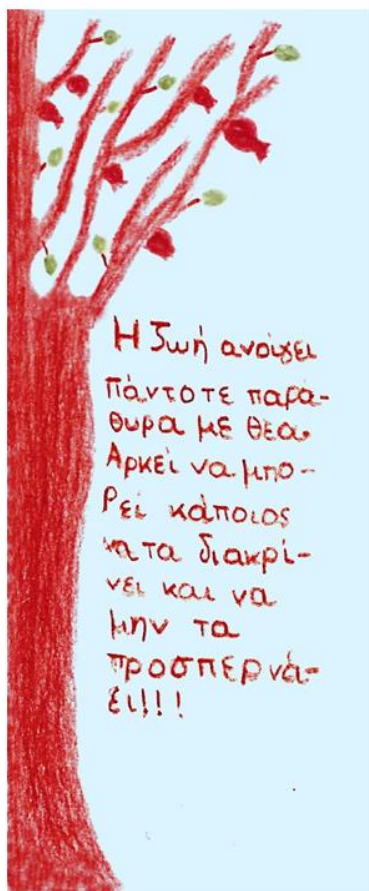 Η ζωή ανοίγει
πάντοτε παρά-
θυρα με θέα.
Αρκεί να μπο-
ρεί κάποιος
να τα διακρί-
νει και να
μην τα
προσπερνά-
ει!!!